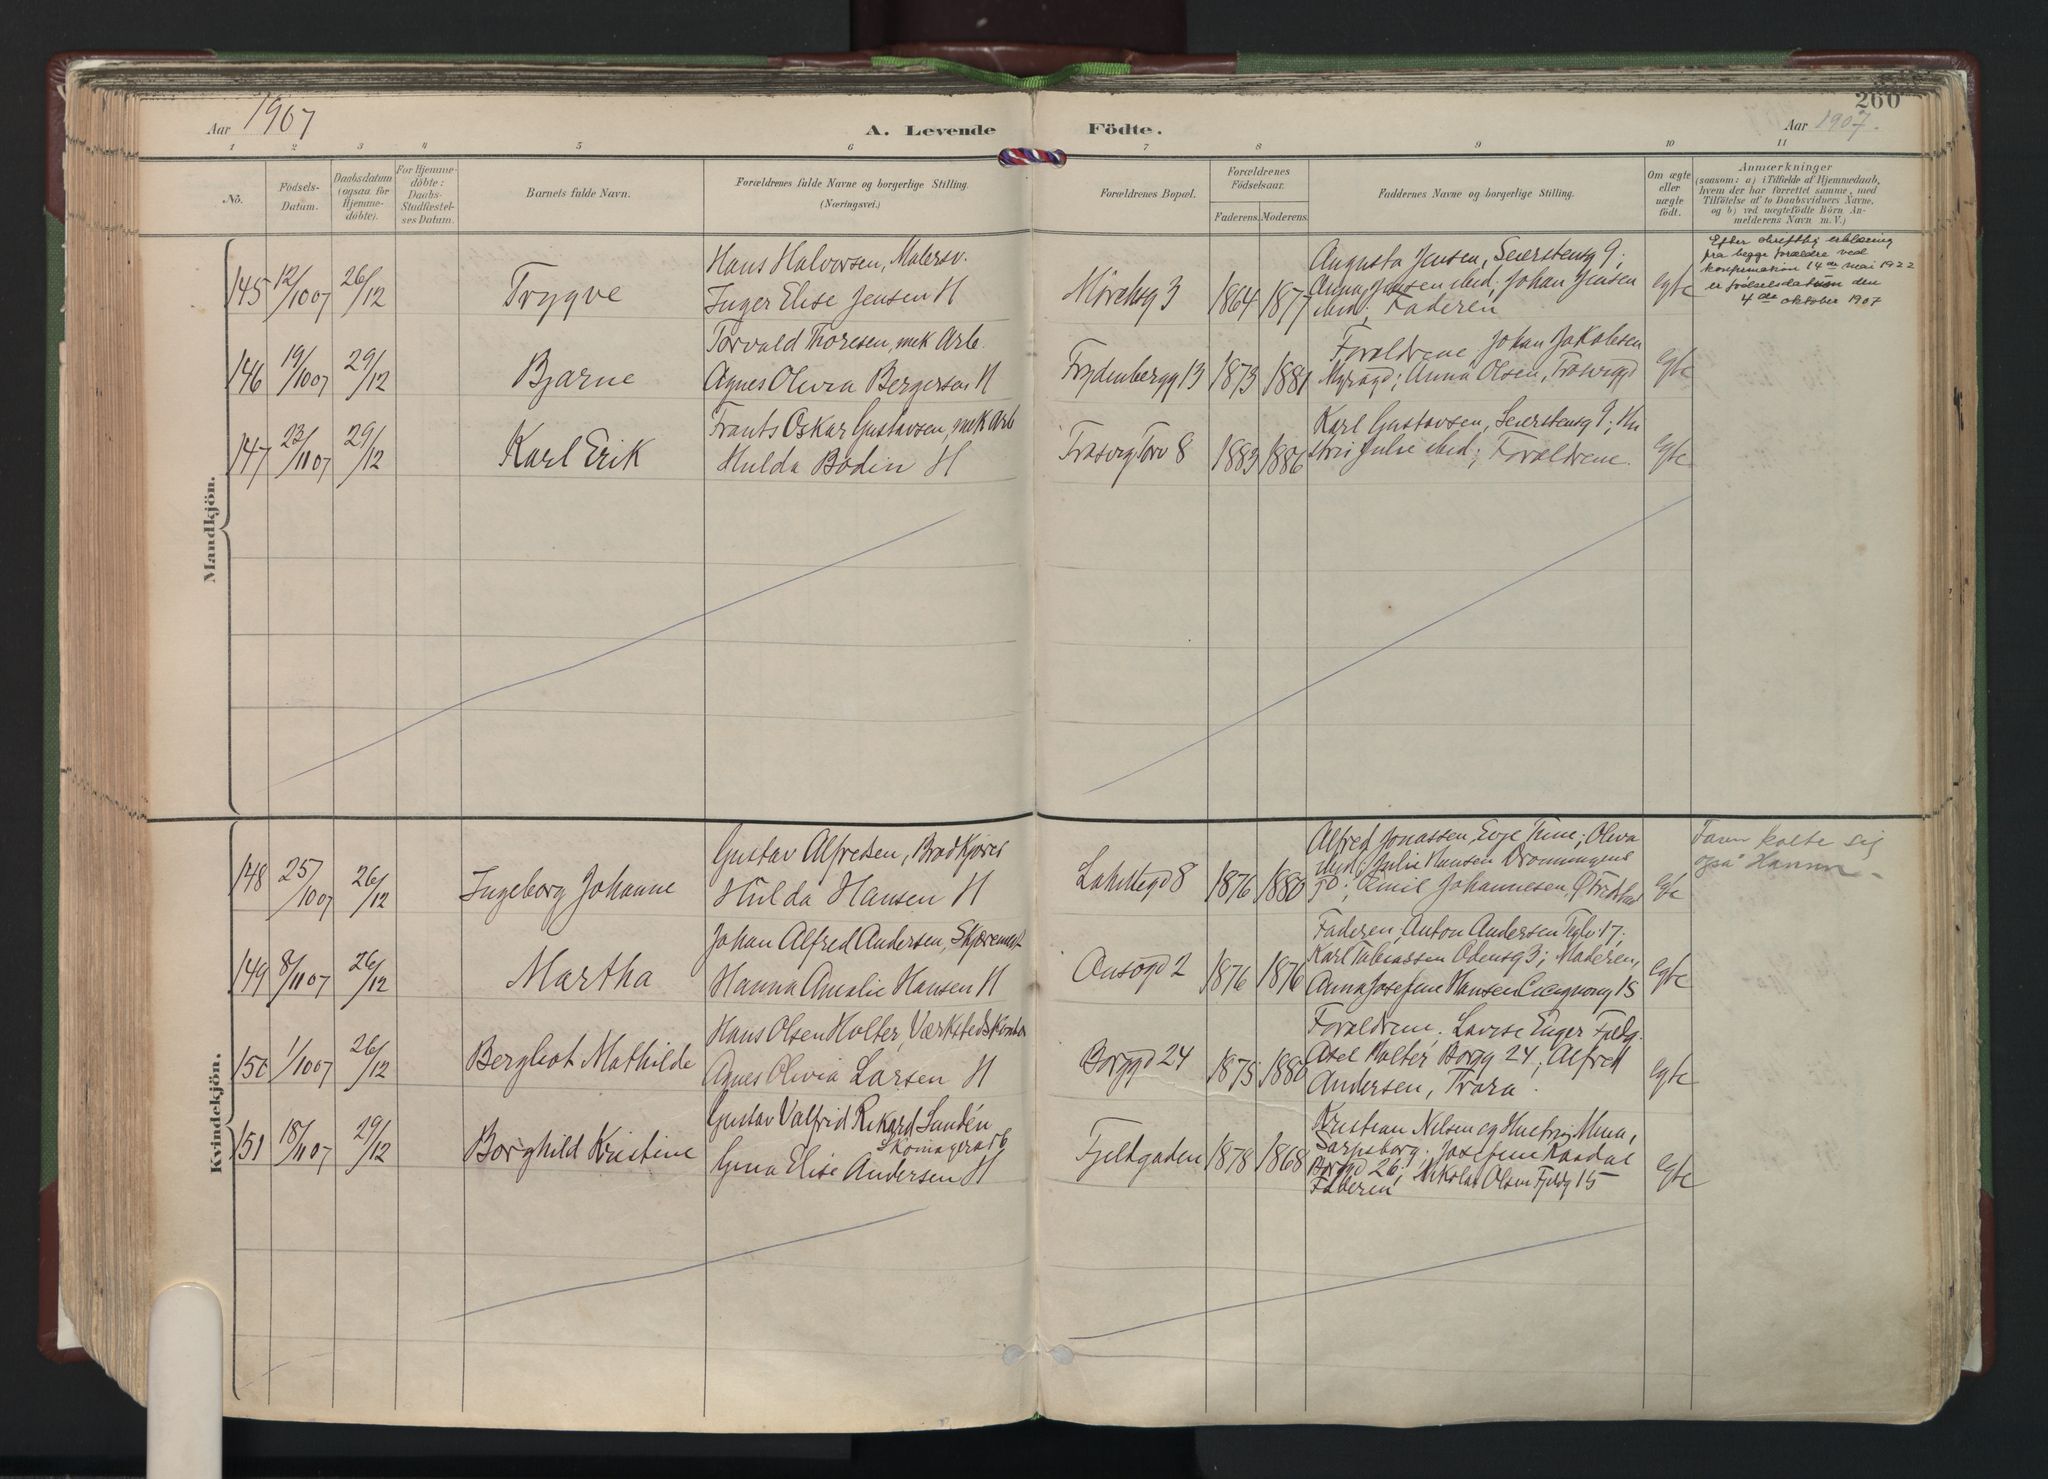 260
Aar 1907
A. Levende
Födte.
Aar 1907.
1 2 3 4 5 6 7 8 9 10 11
No.
Födsels-
Datum.
Daabsdatum
(ogsaa for
Hjemme-
döbte).
For Hjemme-
döbte:
Daabs-
Stadfæstel-
ses Datum.
Barnets fulde Navn.
Forældrenes fulde Navne og borgerlige Stilling.
(Næringsvei.)
Forældrenes Bopæl.
Forældrenes
Födselsaar.
Faderens. Moderens.
Faddernes Navne og borgerlige Stilling.
Om ægte
eller
uægte
födt.
Anmærkninger
(saasom: a) i Tilfælde af Hjemmedaab,
hvem der har forrettet samme, med
Tilföielse af to Daabsvidners Navne,
og b) ved uægtefödte Börn An-
melderens Navn m. V.)
Mandkjön.
145 12/10 07 26/12
Trygve
Hans Halvorsen, Malersv.
Inger Elise Jensen H
1864 1877
Augusta Jensen, Seierstensg 9;
Anna Jensen ibid; Johan Jensen
ibid; Faderen
egte
Efter skriftlig erklæring
fra begge forældre ved
konfirmation 14de mai 1922
er fødselsdatum den
4de oktober 1907
146 19/10 07 29/12
Bjarne
Torvald Thoresen, mek Arb.
Agnes Olivia Bergersen H
Frydenbergg 13
1873 1881
Forældrene. Johan Jakobsen
Myragd; Anna Olsen, Trosviggd
egte
147 23/11 07 29/12
Karl Erik
Frants Oskar Gustavsen, mek Arb
Hulda Bodin H
Trosvig Torv 8
1883 1886
Karl Gustavsen, Seierstensg 9; Hu
stru Julie ibid; Forældrene.
egte
Kvindekjön.
148 25/10 07 26/12
Ingeborg Johanne
Gustav Alfredsen, Brødkjører
Hulda Hansen H
Lahellegd 8
1876 1880
Alfred Jonassen, Evje Tune; Oliva
ibid; Julie Hansen Dronningens
Emil Johannesen,
egte
Tavn kalte sig
også Hanna
149 8/11 07 26/12
Martha
Johan Alfred Andersen,
Hanna Amalie Hansen H
2
1876 1876
Faderen, Anton Andersen Teglv 17;
Karl Tobiassen Odensg 3; Moderen,
Anna Josefine Hansen 15
egte
150 1/10 07 26/12
Bergliot Mathilde
Hans Olsen Holter,
Agnes Olivia Larsen H
Borggd 24
1875 1880
Forældrene. Lovise Enger Fjeldg.
Axel Holter Borgg 24; Alfred
Andersen, Trara.
egte
151 18/11 07 29/12
Borghild Kristine
Gustav Valfrid Rikard Sandén
Skomagerarb
Gina Elise Andersen H
Fjeldgaden
1878 1868
Kristian Nilsen og Hustru Mina,
Sarpsborg; Josefine Kaadal
Borggd 26; Nikolai Olsen Fjeldg 15
Faderen
egte